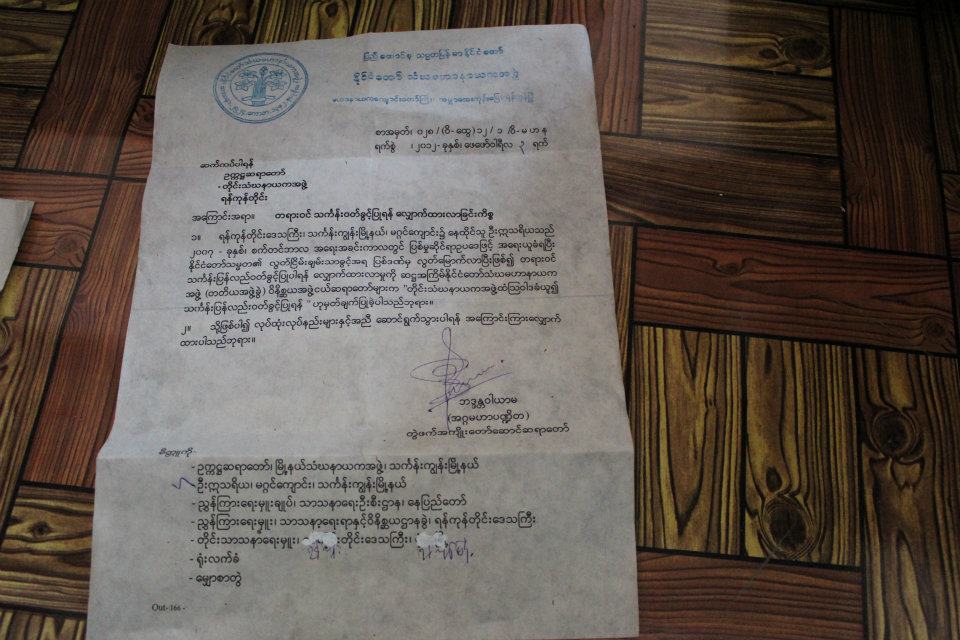 ပြည်ထောင်စု သမ္မတမြန်မာနိုင်ငံတော်
နိုင်ငံတော် သံဃမဟာနာယကအဖွဲ့
စာအမှတ်၊ ၀၂၈ / (ဝိ-ထွေ) ၁၂ / ၁ /ဝိ- မ ဟ န
ရက်စွဲ ၊ ၂၀၁၂- ခုနှစ်၊ ဖေဖော်ဝါရီလ ၃ ရက်
ဆက်ကပ်ပါရန်
ဥက္ကဋ္ဌဆရာတော်
- တိုင်းသံဃနာယကအဖွဲ့
ရန်ကုန်တိုင်း
အကြောင်းအရာ။ တရားဝင် သင်္ကန်းဝတ်ခွင့်ပြုရန် လျှောက်ထားလာခြင်းကိစ္စ
၁။ ရန်ကုန်တိုင်းဒေသကြီး၊ သင်္ကန်းကျွန်းမြို့နယ်၊ မဂ္ဂင်ကျောင်း၌ နေထိုင်သူ ဦးဣဿရိယသည်
၂၀၀၇ - ခုနှစ်၊ စက်တင်ဘာလ အရေးအခင်းကာလတွင် ပြစ်မှုဆိုင်ရာဥပဒေဖြင့် အရေးယူခံရပြီး
နိုင်ငံတော်သမ္မတ၏ လွတ်ငြိမ်းချမ်းသာခွင့်အရ ပြစ်ဒဏ်မှ လွတ်မြောက်လာပြီးဖြစ်၍ တရားဝင်
သင်္ကန်းပြန်လည်ဝတ်ခွင့်ပြုပါရန် လျှောက်ထားလာမှုကို ဆဋ္ဌအကြိမ်နိုင်ငံတော်သံဃမဟာနာယက
အဖွဲ့ (တတိယအဖွဲ့ခွဲ) ဝိနိစ္ဆယအဖွဲ့ငယ်ဆရာတော်များက "တိုင်းသံဃနာယကအဖွဲ့ထံဩဝါဒခံယူ၍
သင်္ကန်းပြန်လည်းဝတ်ခွင့်ပြုရန် " ဟုမှတ်ချက်ပြုခဲ့ပါသည်ဘုရား။
၂။ သို့ဖြစ်ပါ၍ လုပ်ထုံးလုပ်နည်းများနှင့်အညီ ဆောင်ရွက်သွားပါရန် အကြောင်းကြားလျှောက်
ထားပါသည်ဘုရား။
ဘဒ္ဒန္တဝါယာမ
(အဂ္ဂမဟာပဏ္ဍိတ)
တွဲဖက်အကျိုးတော်ဆောင်ဆရာတော်
မိတ္တူကို-
- ဥက္ကဋ္ဌဆရာတော်၊ မြို့နယ်သံဃနာယကအဖွဲ့၊ သင်္ကန်းကျွန်းမြို့နယ်
- ဦးဣဿရိယ၊ မဂ္ဂင်ကျောင်း၊ သင်္ကန်းကျွန်းမြို့နယ်
- ညွှန်ကြားရေးမှူးချုပ်၊ သာသနာရေးဦးစီးဌာန၊ နေပြည်တော်
- ညွှန်ကြားရေးမှူး၊ သာသနာရေးရာနှင့်ဝိနိစ္ဆယဌာနခွဲ၊ ရန်ကုန်တိုင်းဒေသကြီး
- တိုင်းသာသနာရေးမှူး၊ တိုင်းဒေသကြီး၊
- ရုံးလက်ခံ
- မျှောစာတွဲ
Out- 166 -